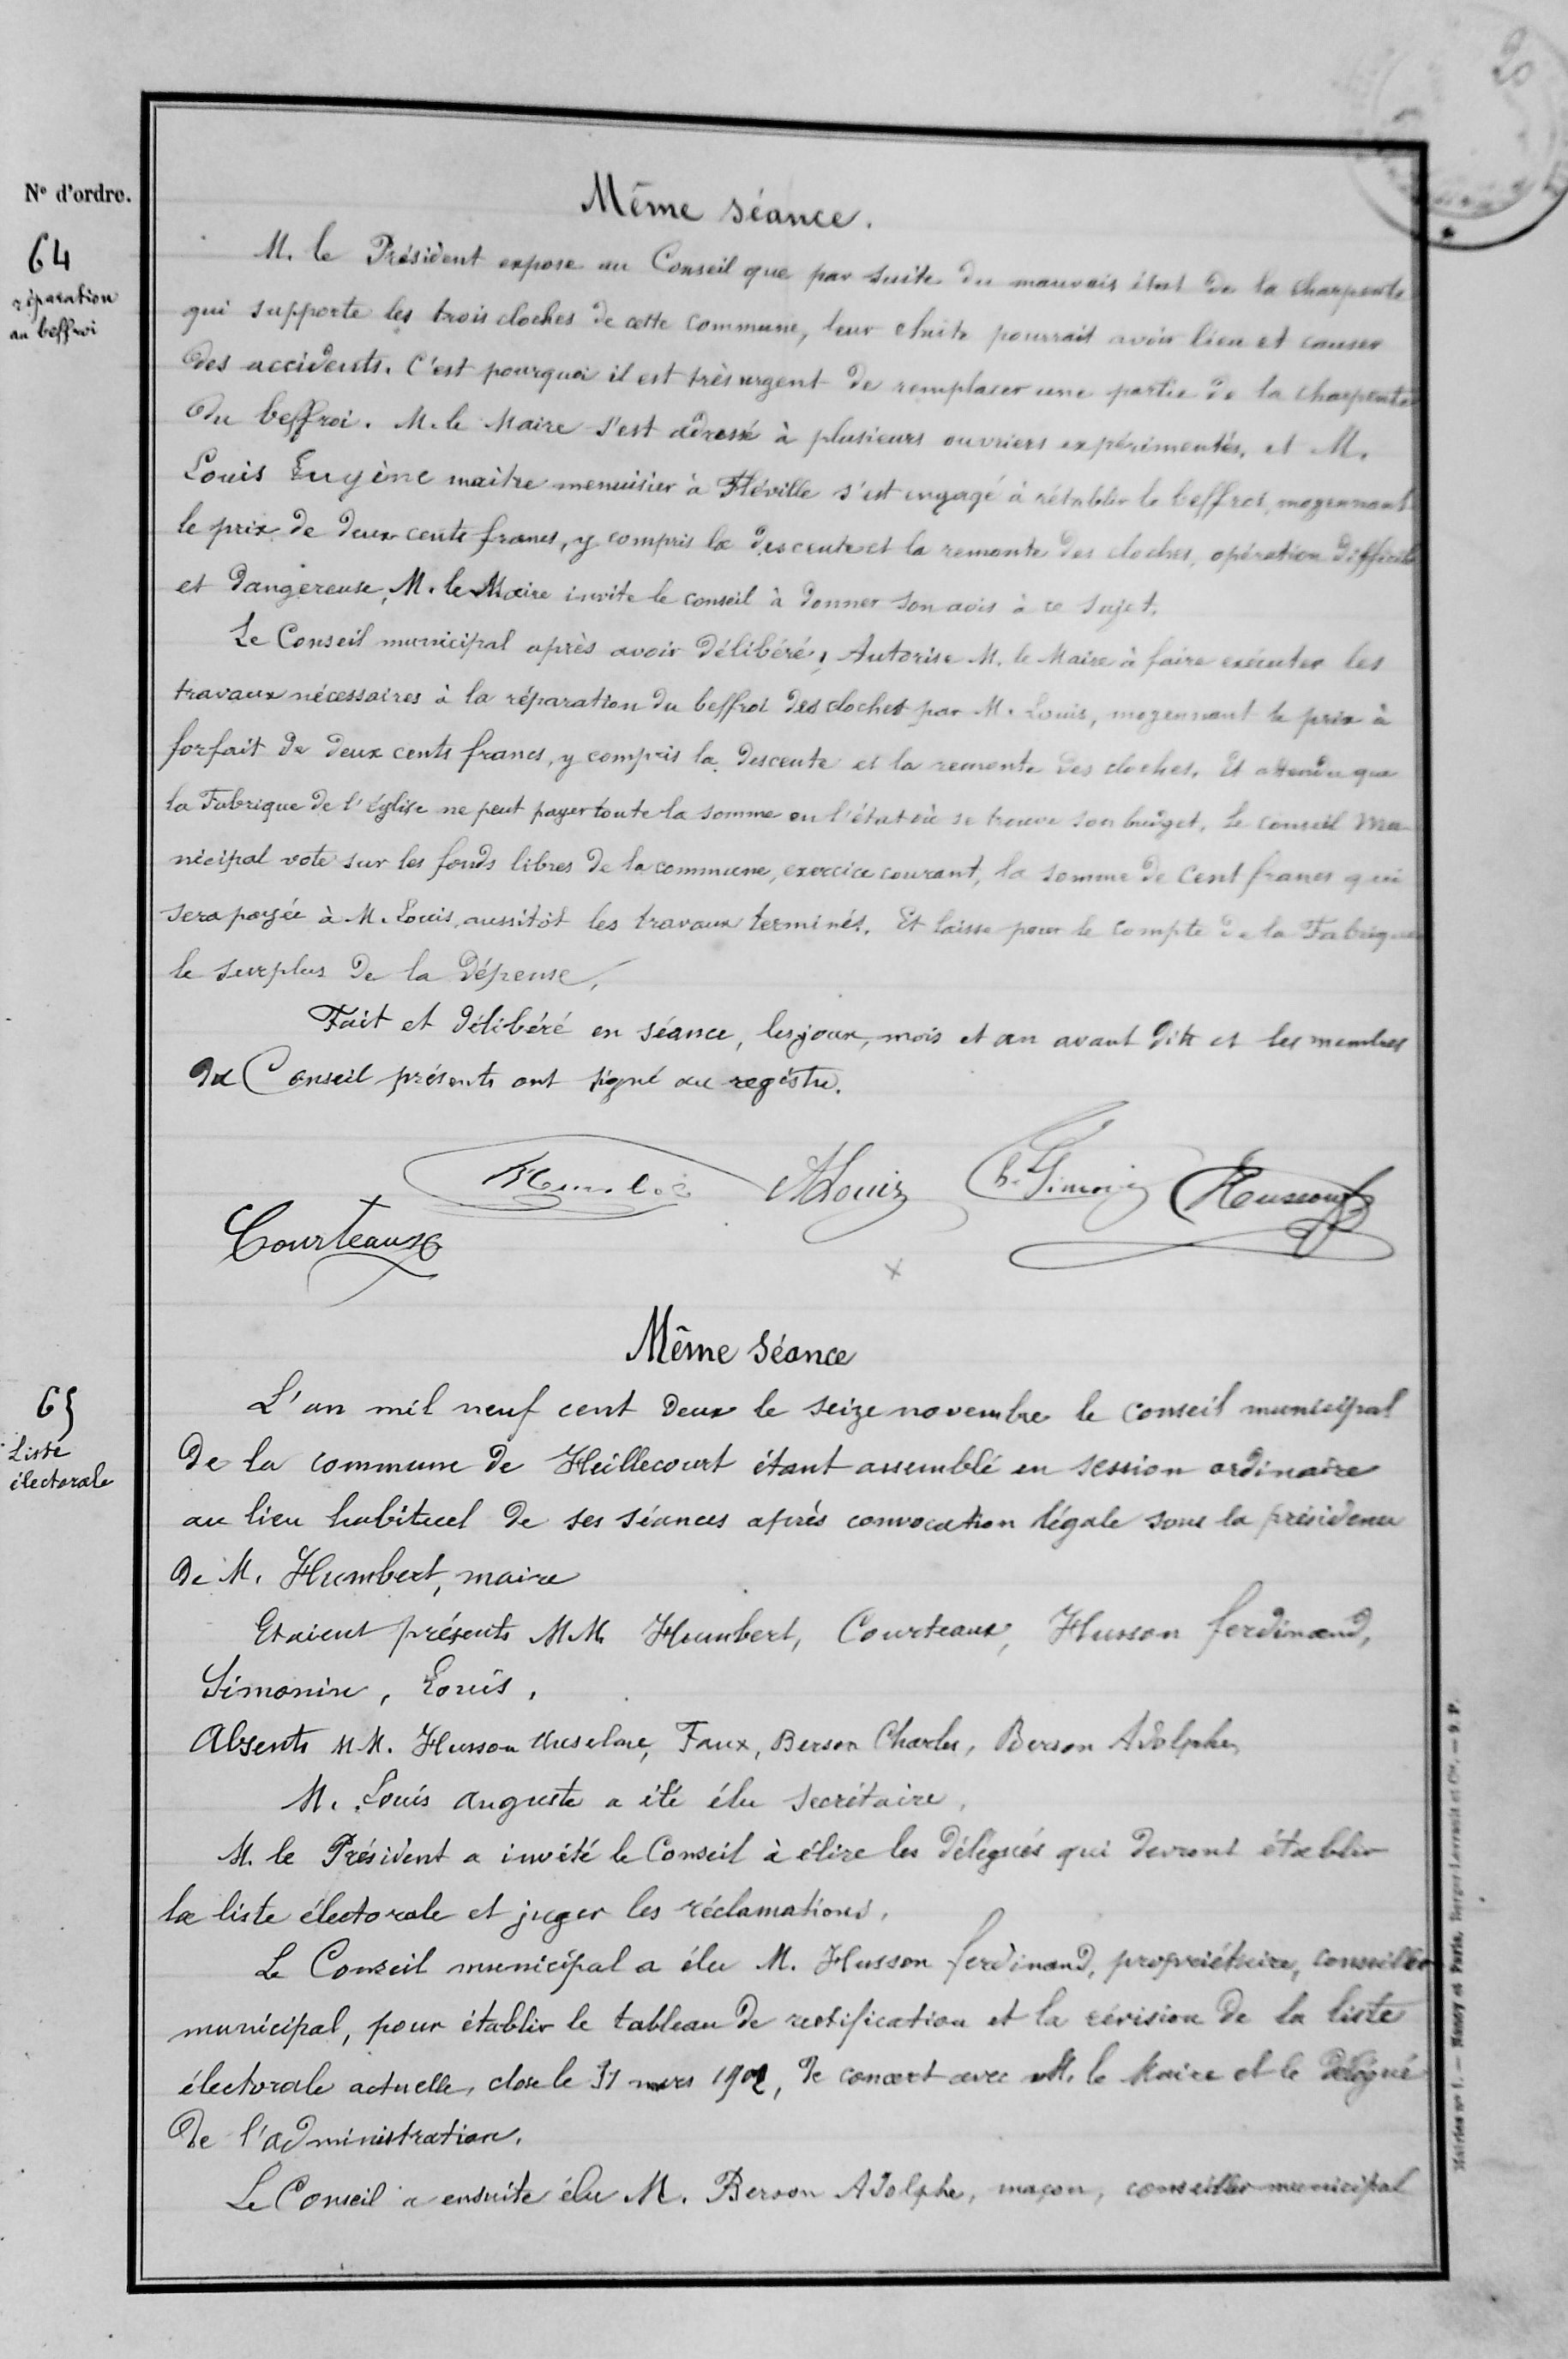 20
N° d'ordre.
64
réparation
au beffroi
Même séance.
M. le Président expose au Conseil que par suite du mauvais état de la charpente
qui supporte les trois cloches de cette commune, leur chute pourrait avoir lieu et causer
des accidents. C'est pourquoi il est très urgent de remplacer une partie de la charpente
du beffroi. M. le Maire s'est adressé à plusieurs ouvriers expérimentés, et M.
Louis Eugène maître menuisier à Fléville s'est engagé à rétablir le beffroi, moyennant
le prix de deux cents francs, y compris la descente et la remonte des cloches, opération difficile
et dangereuse, M. le Maire invite le conseil à donner son avis à ce sujet.
Le Conseil municipal après avoir délibéré, Autorise M. le Maire à faire exécuter les
travaux nécessaires à la réparation du beffroi des cloches par M. Louis, moyennant le prix à
forfait de deux cents francs, y compris la descente et la remonte des cloches. Et attendu que
la Fabrique de l'église ne peut payer toute la somme en l'état où se trouve son budget, Le conseil mu-
nicipal vote sur les fonds libres de la commune, exercice courant, la somme de cent francs qui
sera payée à M. Louis, aussitôt les travaux terminés. Et laisse pour le compte de la Fabrique
le surplus de la dépense,
Fait et délibéré en séance, les jour, mois et an avant dits et les membres
du Conseil présents ont signé au registre.
Humbert ALouis Ch. Simonin Husson f
Courteaux
65
Liste
électorale
Même séance
L'an mil neuf cent deux le seize novembre le conseil municipal
de la commune de Heillecourt étant assemblé en session ordinaire
au lieu habituel de ses séances après convocation légale sous la présidence
de M. Humbert, maire
Etaient présents MM. Humbert, Courteaux, Husson ferdinand,
Simonin, Louis,
Absents MM. Husson Anselme, Faux, Berson Charles, Berson Adolphe,
M. Louis auguste a été élu secrétaire,
M. le Président a invité le Conseil à élire les délégués qui devront établir
la liste électorale et juger les réclamations,
Le Conseil municipal a élu M. Husson ferdinand, propriétaire, conseiller
municipal, pour établir le tableau de rectification et la révision de la liste
électorale actuelle, close le 31 mars 1902, de concert avec M. le Maire et le délégué
de l'administration.
Le Conseil a ensuite élu M. Berson Adolphe, maçon, conseiller municipal
Mairies n° 1. — Nancy et Paris, Berger-Levrault et Cie. — 9. P.